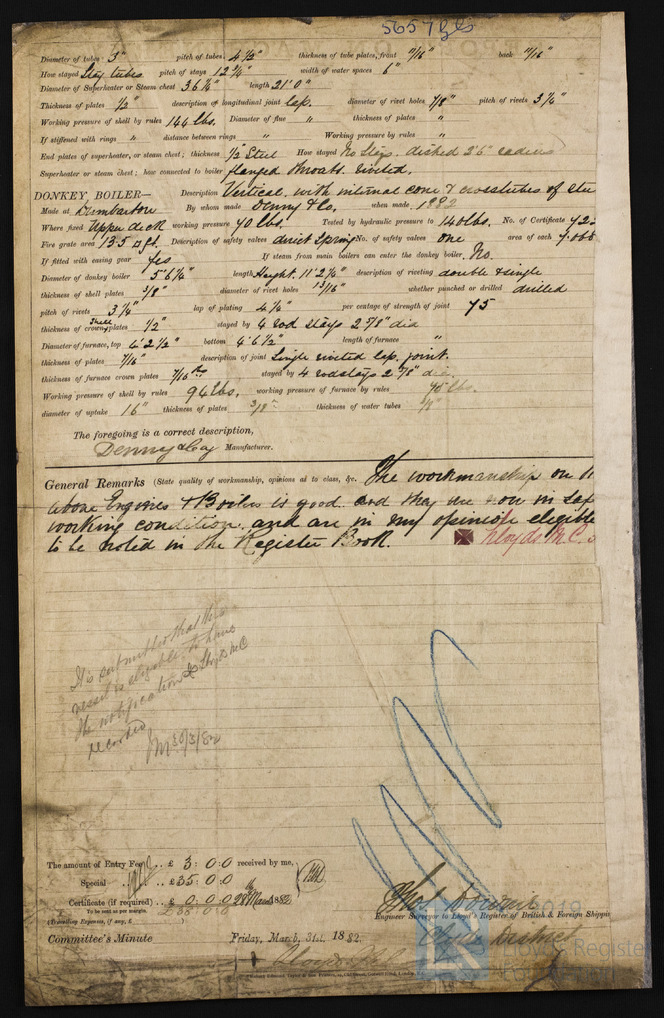 5657 Gls
Diameter of tubes 3" pitch of tubes 4 1/2" thickness of tube plates, front 11/16" back 11/16"
How stayed Stay tubes pitch of stays 12 3/4" width of water spaces 6"
Diameter of Superheater or Steam chest 36 1/4" length 21' 0"
Thickness of plates 1/2" description of longitudinal joint lap. diameter of rivet holes 7/8" pitch of rivets 3 1/4"
Working pressure of shell by rules 144 lbs. Diameter of flue " thickness of plates "
If stiffened with rings " distance between rings " Working pressure by rules "
End plates of superheater, or steam chest; thickness 1/2 Steel How stayed No Stays. dished 2' 6" radius
Superheater or steam chest; how connected to boiler flanged throats. riveted.
DONKEY BOILER— Description Vertical. with internal cone & crosstubes of
Made at Dumbarton By whom made Denny & Co. when made 1882
Where fixed Upper deck working pressure 70 lbs. Tested by hydraulic pressure to 140 lbs. No. of Certificate
Fire grate area 13.5 sq ft. Description of safety valves direct Spring No. of safety valves one area of each
If fitted with easing gear yes If steam from main boilers can enter the donkey boiler No.
Diameter of donkey boiler 5' 6 3/4" length Height. 11' 2 3/4" description of riveting double & single
thickness of shell plates 3/8" diameter of rivet holes 13/16" whether punched or drilled drilled
pitch of rivets 3 1/4" lap of plating 4 1/4" per centage of strength of joint 75
thickness of shell crown plates 1/2" stayed by 4 rod stays 2 7/8" dia
Diameter of furnace, top 4' 2 1/2" bottom 4' 6 1/2" length of furnace "
thickness of plates 7/16" description of joint Single riveted lap. joint.
thickness of furnace crown plates 7/16 stayed by 4 rod stays 2 7/8" dia.
Working pressure of shell by rules 94 lbs. working pressure of furnace by rules lbs.
diameter of uptake 16" thickness of plates thickness of water tubes
The foregoing is a correct description,
Denny & Coy Manufacturer.
General Remarks (State quality of workmanship, opinions as to class, &c. The workmanship on
above Engines & Boilers is good. and they are now in
working condition. and are in my opinion eligible
to be noted in the Register Book. Lloyds M.C.
It is submitted that this
vessel is eligible to have
the notification Lloyds MC
recorded
30/3/82
The amount of Entry Fee .. £ 3 : 0 : 0 received by me,
Special .. £35 : 0 : 0
Certificate (if required) .. £ 0 . 0 . 0 28th Mar 1882
To be sent as per margin.
(Travelling Expenses, if any, £ )
Thos
Engineer Surveyor to Lloyd's Register of British & Foreign Shipping
Clyde District
Committee's Minute Friday, March, 31st, 1882.
2019
Lloyd's Register